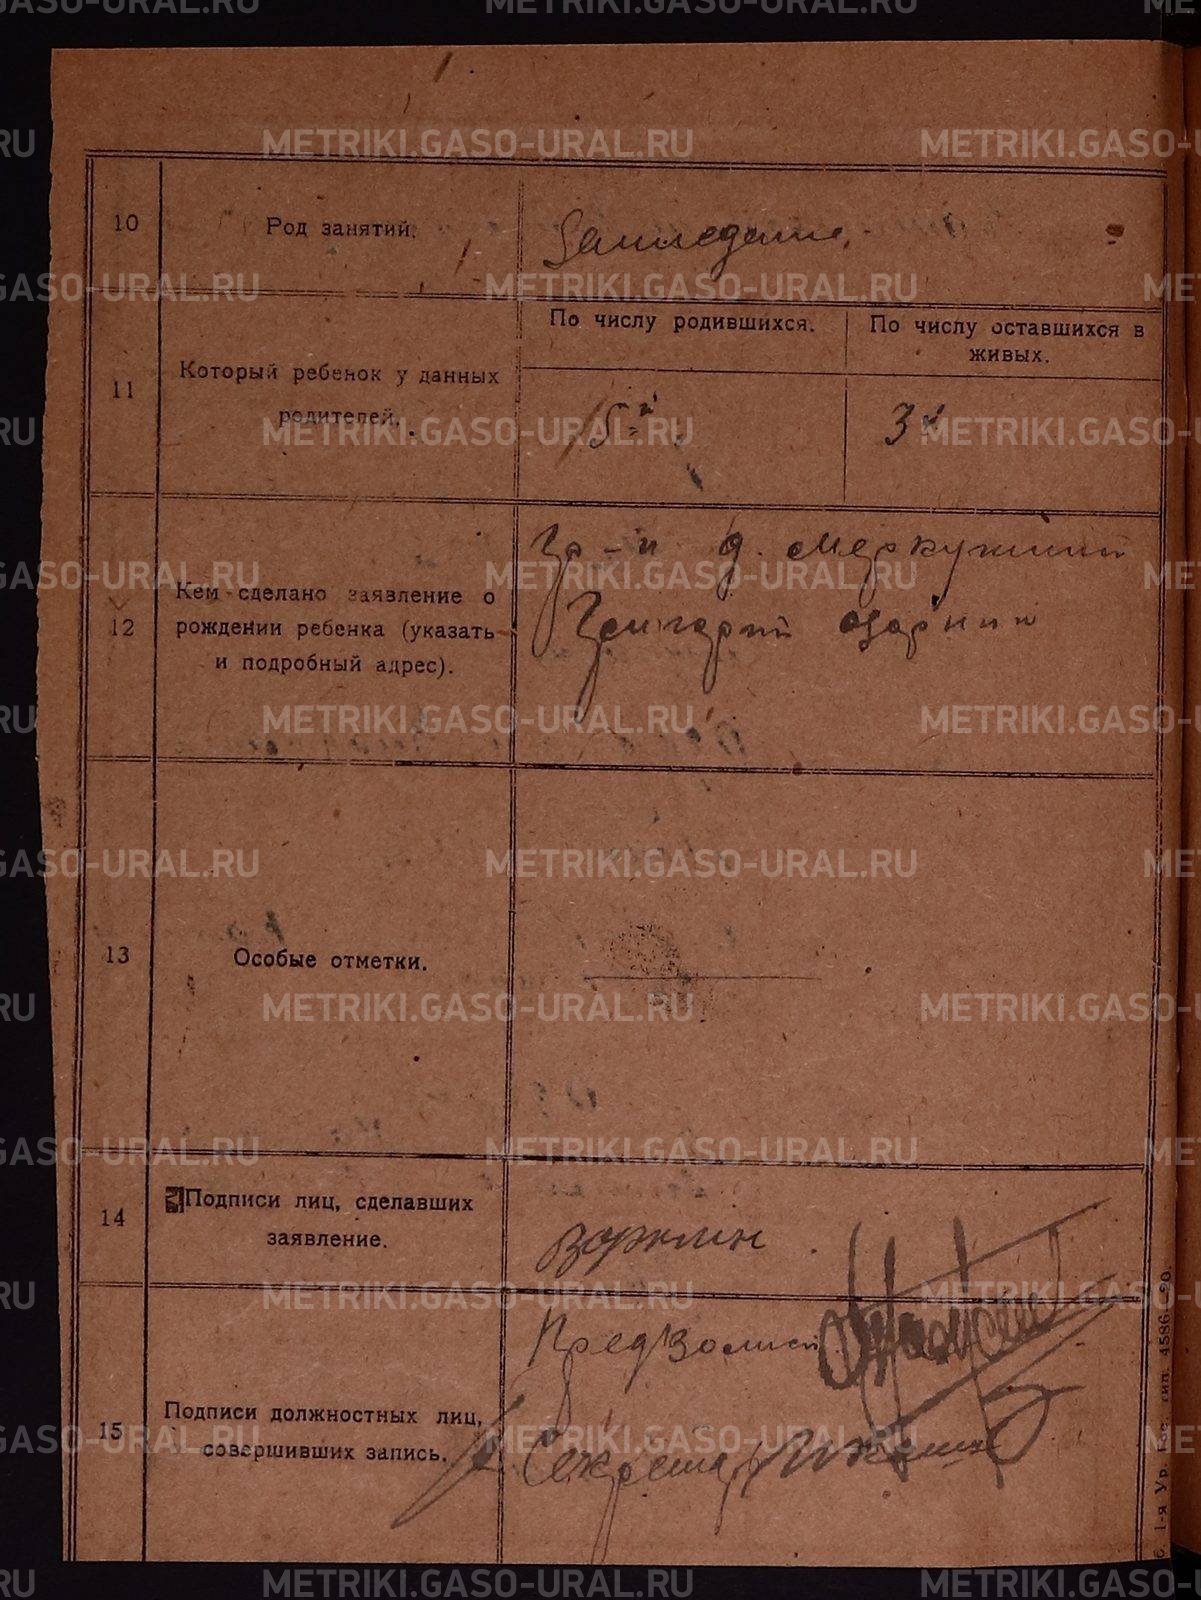 10
Род занятий.
Земледелие.
11
Который ребенок у данных
родителей.
По числу родившихся.
По числу оставшихся в
живых.
15й
3й
12
Кем сделано заявление о
рождении ребенка (указать
и подробный адрес).
Гр-н д. Меркушиной
Григорий
13
Особые отметки.
14
Подписи лиц, сделавших
заявление.
15
Подписи должностных лиц,
совершивших запись.
Предволисп.
Секретарь
METRIKI.GASO-URAL.RU